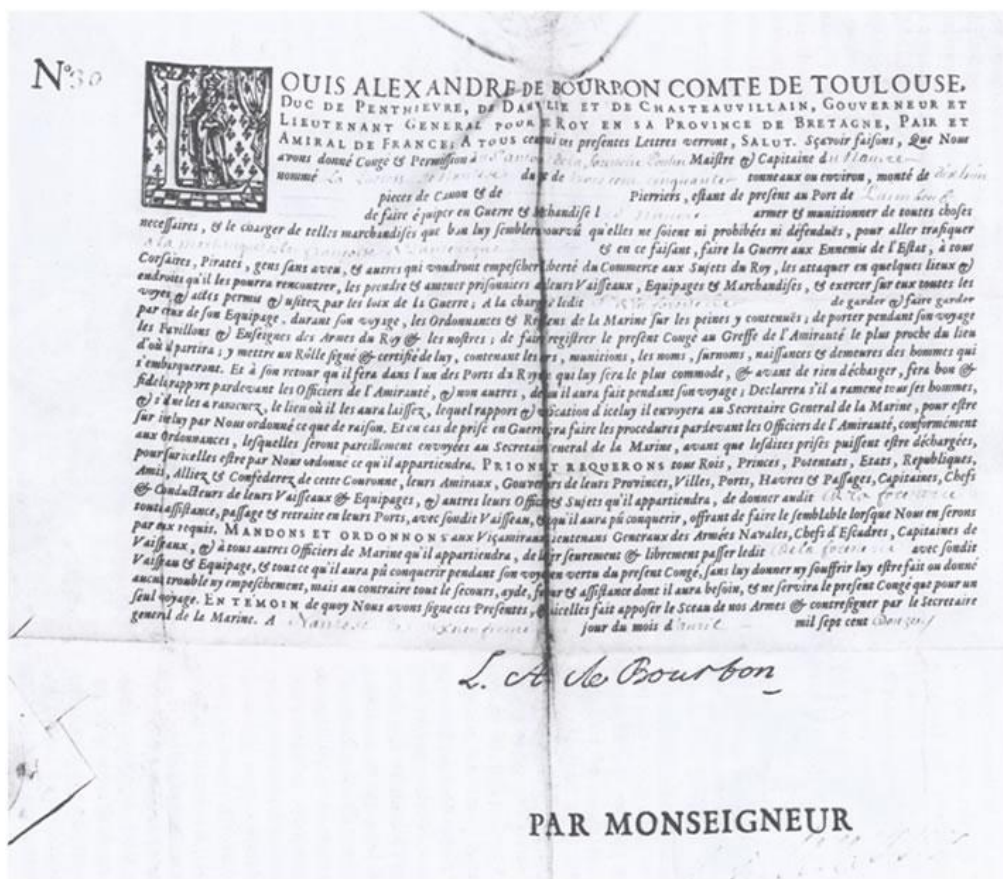 N° 30
LOUIS ALEXANDRE DE BOURBON COMTE DE TOULOUSE,
DUC DE PENTHIEVRE, DE DANVILLE ET DE CHASTEAUVILLAIN, GOUVERNEUR ET
LIEUTENANT GENERAL POUR LE ROY EN SA PROVINCE DE BRETAGNE, PAIR ET
AMIRAL DE FRANCE; A TOUS ceux qui ces presentes Lettres verront, SALUT. Sçavoir faisons, Que Nous
avons donné Congé & Permission Maistre & Capitaine du Navire
nommé La du de trois cent cinquante tonneaux ou environ, monté de
pieces de Canon & de Pierriers, estant de present au Port de
de faire équiper en Guerre & Marchandise armer & munitionner de toutes choses
necessaires, & le charger de telles marchandises que bon luy semblera pourvû qu'elles ne soient ni prohibées ni défenduës, pour aller trafiquer
a la martinique & en ce faisant, faire la Guerre aux Ennemis de l'Estat, à tous
Corsaires, Pirates, gens sans aveu, & autres qui voudront empescher liberté du Commerce aux Sujets du Roy, les attaquer en quelques lieux &
endroits qu'il les pourra rencontrer, les prendre & amener prisonniers leurs Vaisseaux, Equipages & Marchandises, & exercer sur eux toutes les
voyes & actes permis & usitez par les loix de la Guerre; A la charge ledit de garder & faire garder
par ceux de son Equipage, durant son voyage, les Ordonnances & Reglemens de la Marine sur les peines y contenuës; de porter pendant son voyage
les Pavillons & Enseignes des Armes du Roy & les nostres; de faire registrer le present Congé au Greffe de l'Amirauté le plus proche du lieu
d'où il partira; y mettre un Rôlle signé & certifié de luy, contenant les munitions, les noms, surnoms, naissances & demeures des hommes qui
s'embarqueront. Et à son retour qu'il fera dans l'un des Ports du Royaume qui luy sera le plus commode, & avant de rien décharger, fera bon &
fidel rapport pardevant les Officiers de l'Amirauté, & non autres, de il aura fait pendant son voyage; Declarera s'il a ramené tous ses hommes,
& s'il ne les a ramenez, le lieu où il les aura laissez, lequel rapport & verification d'iceluy il envoyera au Secretaire General de la Marine, pour estre
sur iceluy par Nous ordonné ce que de raison. Et en cas de prise en Guerre fera faire les procedures pardevant les Officiers de l'Amirauté, conformément
aux Ordonnances, lesquelles seront pareillement envoyées au Secretaire General de la Marine, avant que lesdites prises puissent estre déchargées,
pour sur icelles estre par Nous ordonné ce qu'il appartiendra. PRIONS ET REQUERONS tous Rois, Princes, Potentats, Etats, Republiques,
Amis, Alliez & Conféderez de cette Couronne, leurs Amiraux, Gouverneurs de leurs Provinces, Villes, Ports, Havres & Passages, Capitaines, Chefs
& Conducteurs de leurs Vaisseaux & Equipages, & autres leurs Officiers & Sujets qu'il appartiendra, de donner audit
tout assistance, passage & retraite en leurs Ports, avec sondit Vaisseau, & qu'il aura pû conquerir, offrant de faire le semblable lorsque Nous en serons
par eux requis. MANDONS ET ORDONNONS aux Viçamiraux, Lieutenans Generaux des Armées Navales, Chefs d'Escadres, Capitaines de
Vaisseaux, & à tous autres Officiers de Marine qu'il appartiendra, de laisser seurement & librement passer ledit avec sondit
Vaisseau & Equipage, & tout ce qu'il aura pû conquerir pendant son voyage en vertu du present Congé, sans luy donner ny souffrir luy estre fait ou donné
aucun trouble ny empeschement, mais au contraire tout le secours, ayde, faveur & assistance dont il aura besoin, & ne servira le present Congé que pour un
seul voyage. EN TEMOIN de quoy Nous avons signé ces Presentes, & icelles fait apposer le Sceau de nos Armes & contresigner par le Secretaire
general de la Marine. A jour du mois d'avril mil sept cent
L. A de Bourbon
PAR MONSEIGNEUR